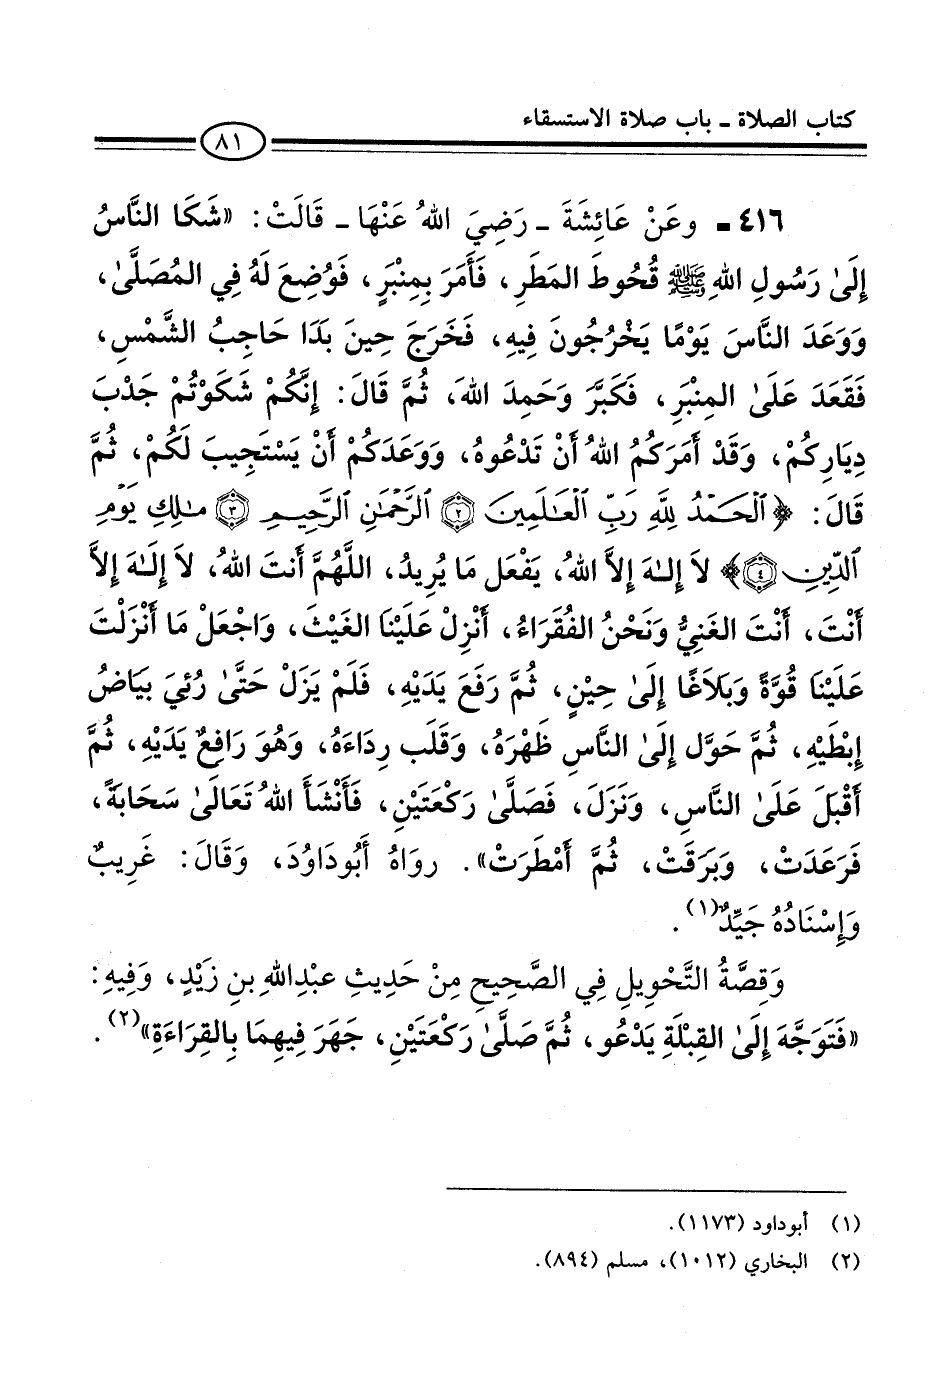 كتاب الصلاة - باب صلاة الاستسقاء
٨١
٤١٦ - وعَنْ عَائِشَةَ - رَضِيَ اللهُ عَنْهَا - قَالَتْ: «شَكَا النَّاسُ
إِلَىٰ رَسُولِ اللهِ ﷺ قُحُوطَ المَطَرِ، فَأَمَرَ بِمِنْبَرٍ، فَوُضِعَ لَهُ فِي المُصَلَّىٰ،
وَوَعَدَ النَّاسَ يَوْمًا يَخْرُجُونَ فِيهِ، فَخَرَجَ حِينَ بَدَا حَاجِبُ الشَّمْسِ،
فَقَعَدَ عَلَىٰ المِنْبَرِ، فَكَبَّرَ وَحَمِدَ اللهَ، ثُمَّ قَالَ: إِنَّكُمْ شَكَوْتُمْ جَدْبَ
دِيَارِكُمْ، وَقَدْ أَمَرَكُمُ اللهُ أَنْ تَدْعُوهُ، وَوَعَدَكُمْ أَنْ يَسْتَجِيبَ لَكُمْ، ثُمَّ
قَالَ: ﴿ٱلْحَمْدُ لِلَّهِ رَبِّ ٱلْعَـٰلَمِينَ ٢ ٱلرَّحْمَـٰنِ ٱلرَّحِيمِ ٣ مَـٰلِكِ يَوْمِ
ٱلدِّينِ ٤﴾ لاَ إِلَـٰهَ إِلاَّ اللهُ، يَفْعَل مَا يُرِيدُ، اللَّهُمَّ أَنتَ اللهُ، لاَ إِلَـٰهَ إِلاَّ
أَنْتَ، أَنْتَ الغَنِيُّ وَنَحْنُ الفُقَرَاءُ، أَنْزِلْ عَلَيْنَا الغَيْثَ، وَاجْعَلْ مَا أَنْزَلْتَ
عَلَيْنَا قُوَّةً وَبَلَاغًا إِلَىٰ حِينٍ، ثُمَّ رَفَعَ يَدَيْهِ، فَلَمْ يَزَلْ حَتَّىٰ رُئِيَ بَيَاضُ
إِبْطَيْهِ، ثُمَّ حَوَّل إِلَىٰ النَّاسِ ظَهْرَهُ، وَقَلَب رِدَاءَهُ، وَهُوَ رَافِعٌ يَدَيْهِ، ثُمَّ
أَقْبَلَ عَلَىٰ النَّاسِ، وَنَزَلَ، فَصَلَّىٰ رَكْعَتَيْنِ، فَأَنْشَأَ اللهُ تَعَالَىٰ سَحَابَةً،
فَرَعَدَتْ، وَبَرَقَتْ، ثُمَّ أَمْطَرَتْ». رواهُ أَبُوداوُدَ، وَقَالَ: غَرِيبٌ
وَإِسْنَادُهُ جَيِّدٌ(١).
وَقِصَّةُ التَّحْوِيلِ فِي الصَّحِيحِ مِنْ حَدِيثِ عبْدِاللهِ بنِ زَيْدٍ، وَفِيهِ:
«فَتَوَجَّهَ إِلَىٰ القِبْلَةِ يَدْعُو، ثُمَّ صَلَّىٰ رَكْعَتَيْنِ، جَهَرَ فِيهِمَا بِالقِرَاءَةِ»(٢).
(١) أبوداود (١١٧٣).
(٢) البخاري (١٠١٢)، مسلم (٨٩٤).